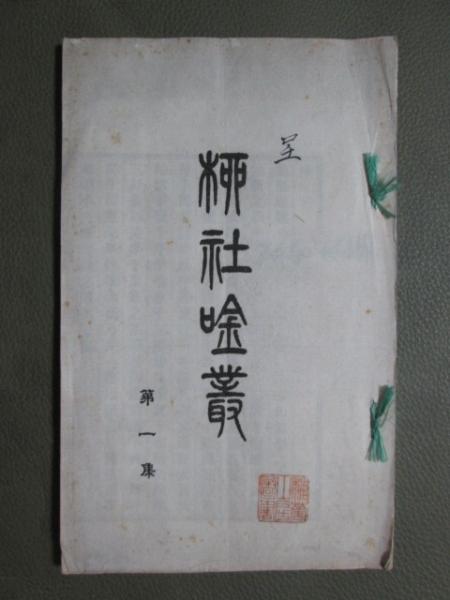 呈
桺社唫叢
第一集